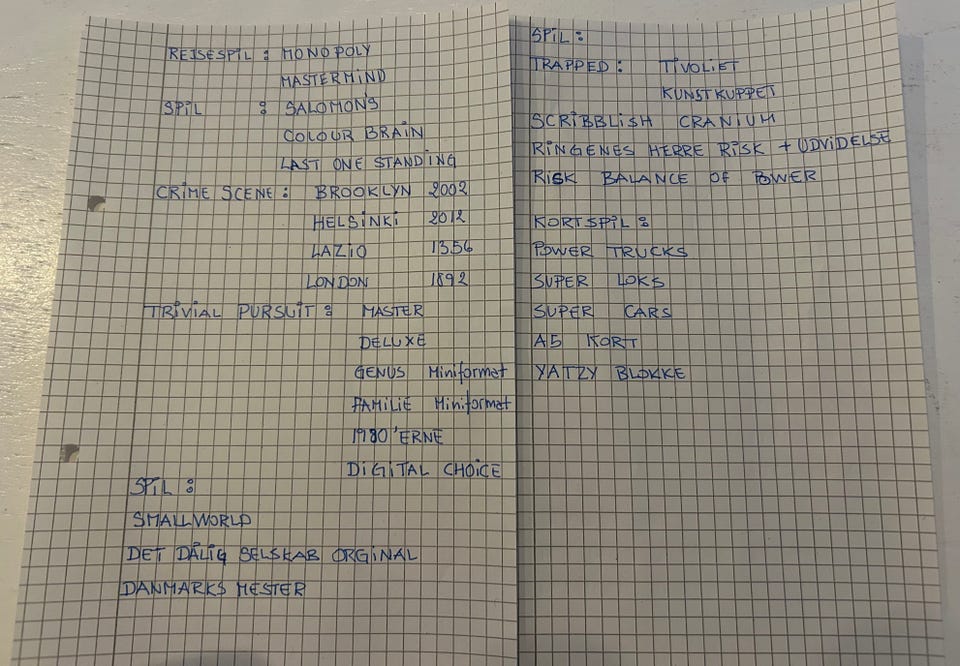 REJSESPIL : MONOPOLY
MASTERMIND
SPIL : SALOMON'S
COLOUR BRAIN
LAST ONE STANDING
CRIME SCENE : BROOKLYN 2002
HELSINKI 2012
LAZIO 1356
LONDON 1892
TRIVIAL PURSUIT : MASTER
DELUXE
GENUS Miniformat
FAMILIE Miniformat
1980'ERNE
DIGITAL CHOICE
SPIL :
SMALLWORLD
DET DÅLIG SELSKAB ORGINAL
DANMARKS MESTER
SPIL :
TRAPPED : TIVOLIET
KUNSTKUPPET
SCRIBBLISH CRANIUM
RINGENES HERRE RISK + UDVIDELSE
RISK BALANCE OF POWER
KORTSPIL :
POWER TRUCKS
SUPER LOKS
SUPER CARS
A5 KORT
YATZY BLOKKE